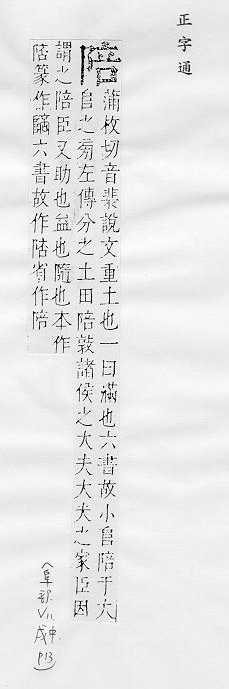 正字通
陪
蒲枚切音裴說文重土也一曰滿也六書故小𨸏陪于大
𨸏之旁左傳分之土田陪敦諸侯之大夫大夫之家臣因
謂之陪臣又助也益也隨也本作
篆作六書故作省作陪
(阜部 V11 戌中 P13)